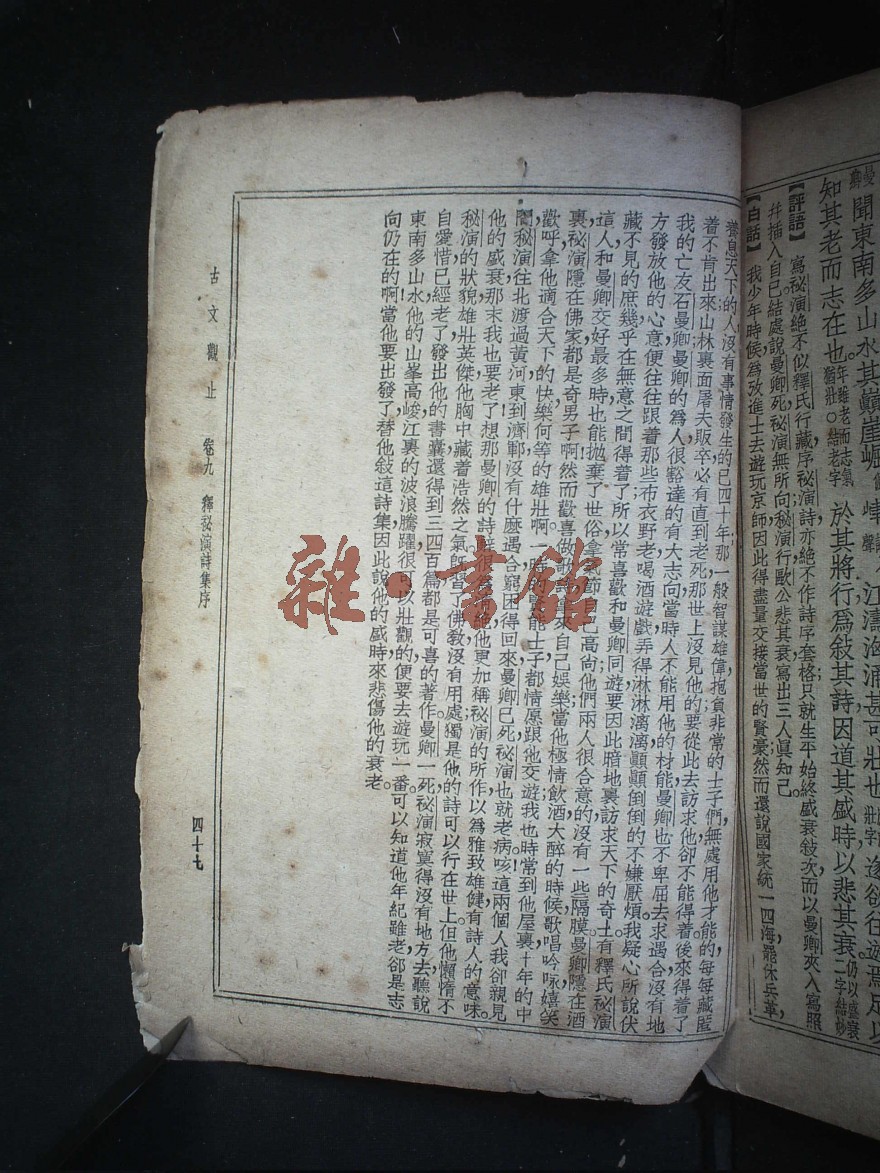 聞東南多山水其巔崖崛 峍 江濤洶涌甚可壯也遂欲往遊焉足以
知其老而志在也。年雖老而志氣猶壯。○結老字 於其將行爲敍其詩因道其盛時以悲其衰。仍以盛衰二字結妙
【評語】 寫祕演絕不似釋氏行藏序祕演詩亦絕不作詩字套格只就生平始終盛衰敍次而以曼卿夾入寫照
幷插入自己結處說曼卿死祕演無所向祕演行歐公悲其衰寫出三人眞知己。
【白話】 我少年時候爲攷進士去遊玩京師因此得盡量交接當世的賢豪然而還說國家統一四海罷休兵革，
養息天下的人沒有事情發生的已四十年那一般智謀雄偉抱負非常的士子們，無處用他才能的每每藏匿
着不肯出來山林裏面屠夫販卒必有直到老死那世上沒見他的要從此去訪求他卻不能得着後來得着了
我的亡友石曼卿曼卿的爲人很豁達的有大志向當時人不能用他的材能曼卿也不卑屈去求遇合沒有地
方發放他的心意便往往跟着那些布衣野老喝酒遊戲弄得淋淋漓漓顚顚倒倒的不嫌厭煩我疑心所說伏
藏不見的庶幾乎在無意之間得着了所以常喜歡和曼卿同遊要因此暗地裏訪求天下的奇士有釋氏祕演
這人和曼卿交好最多時也能抛棄了世俗拿 節 已高尚他們兩人很合意的沒有一些隔膜曼卿隱在酒
裏祕演隱在佛家都是奇男子啊然而歡喜做歌 來自己娛樂當他極情飲酒大醉的時候歌唱吟咏嬉笑
歡呼拿他適合天下的快樂何等的雄壯啊！一時的賢能士子都情愿跟他交遊我也時常到他屋裏十年的中
間祕演往北渡過黃河東到濟鄆沒有什麼遇合窮困得回來曼卿已死祕演也就老病咳這兩個人我卻親見
他的盛衰那末我也要老了想那曼卿的詩 很 他更加稱祕演的所作以爲雅致雄健有詩人的意味。
祕演的狀貌雄壯英傑他胸中藏着浩然之氣旣習了佛敎沒有用處獨是他的詩可以行在世上但他懶惰不
自愛惜已經老了發出他的書囊還得到三四百篇都是可喜的著作曼卿一死祕演寂寞得沒有地方去聽說
東南多山水他的山峯高峻江裏的波浪騰躍很可以壯觀的便要去遊玩一番可以知道他年紀雖老卻是志
向仍在的啊當他要出發了替他敍這詩集因此說他的盛時來悲傷他的衰老。
古文觀止 卷九 釋祕演詩集序
四十七
雜·書館